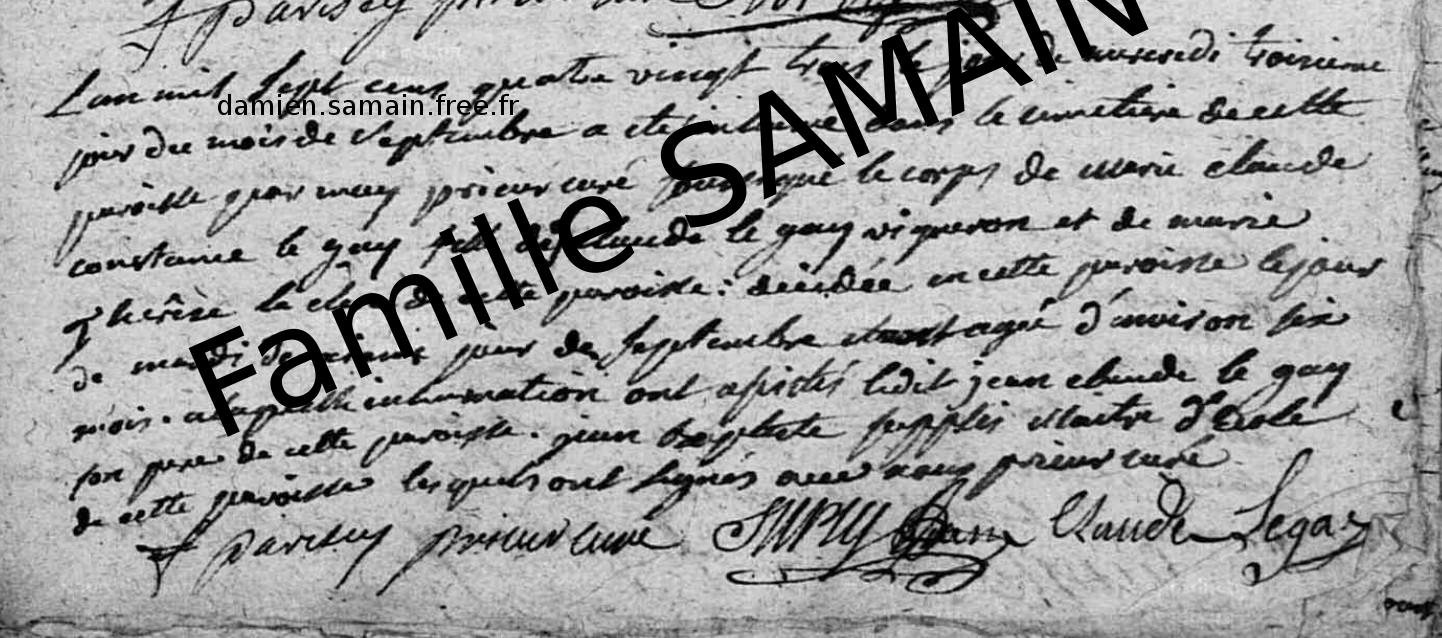 parisey prieur
L'an mil sept cens quatre vingt trois le jour de mercredi troisieme
jour du mois de septembre a ete inhumé dans le cimetiere de cette
paroisse par moy prieur curé soussigné le corps de marie claude
constance le gay fille de claude le gay vigneron et de marie
therêse de cette paroisse: décédée en cette paroisse le jour
de mardi deuxieme jour de septembre agée d'environ six
mois. a laquelle inhumation ont assistés ledit jean claude le gay
son pere de cette paroisse. jean baptiste supplis Maitre d'Ecole
de cette paroisse lesquels ont signés avec nous prieur curé
parisey prieur curé jean Claude Legay
Famille SAMAIN
damien.samain.free.fr